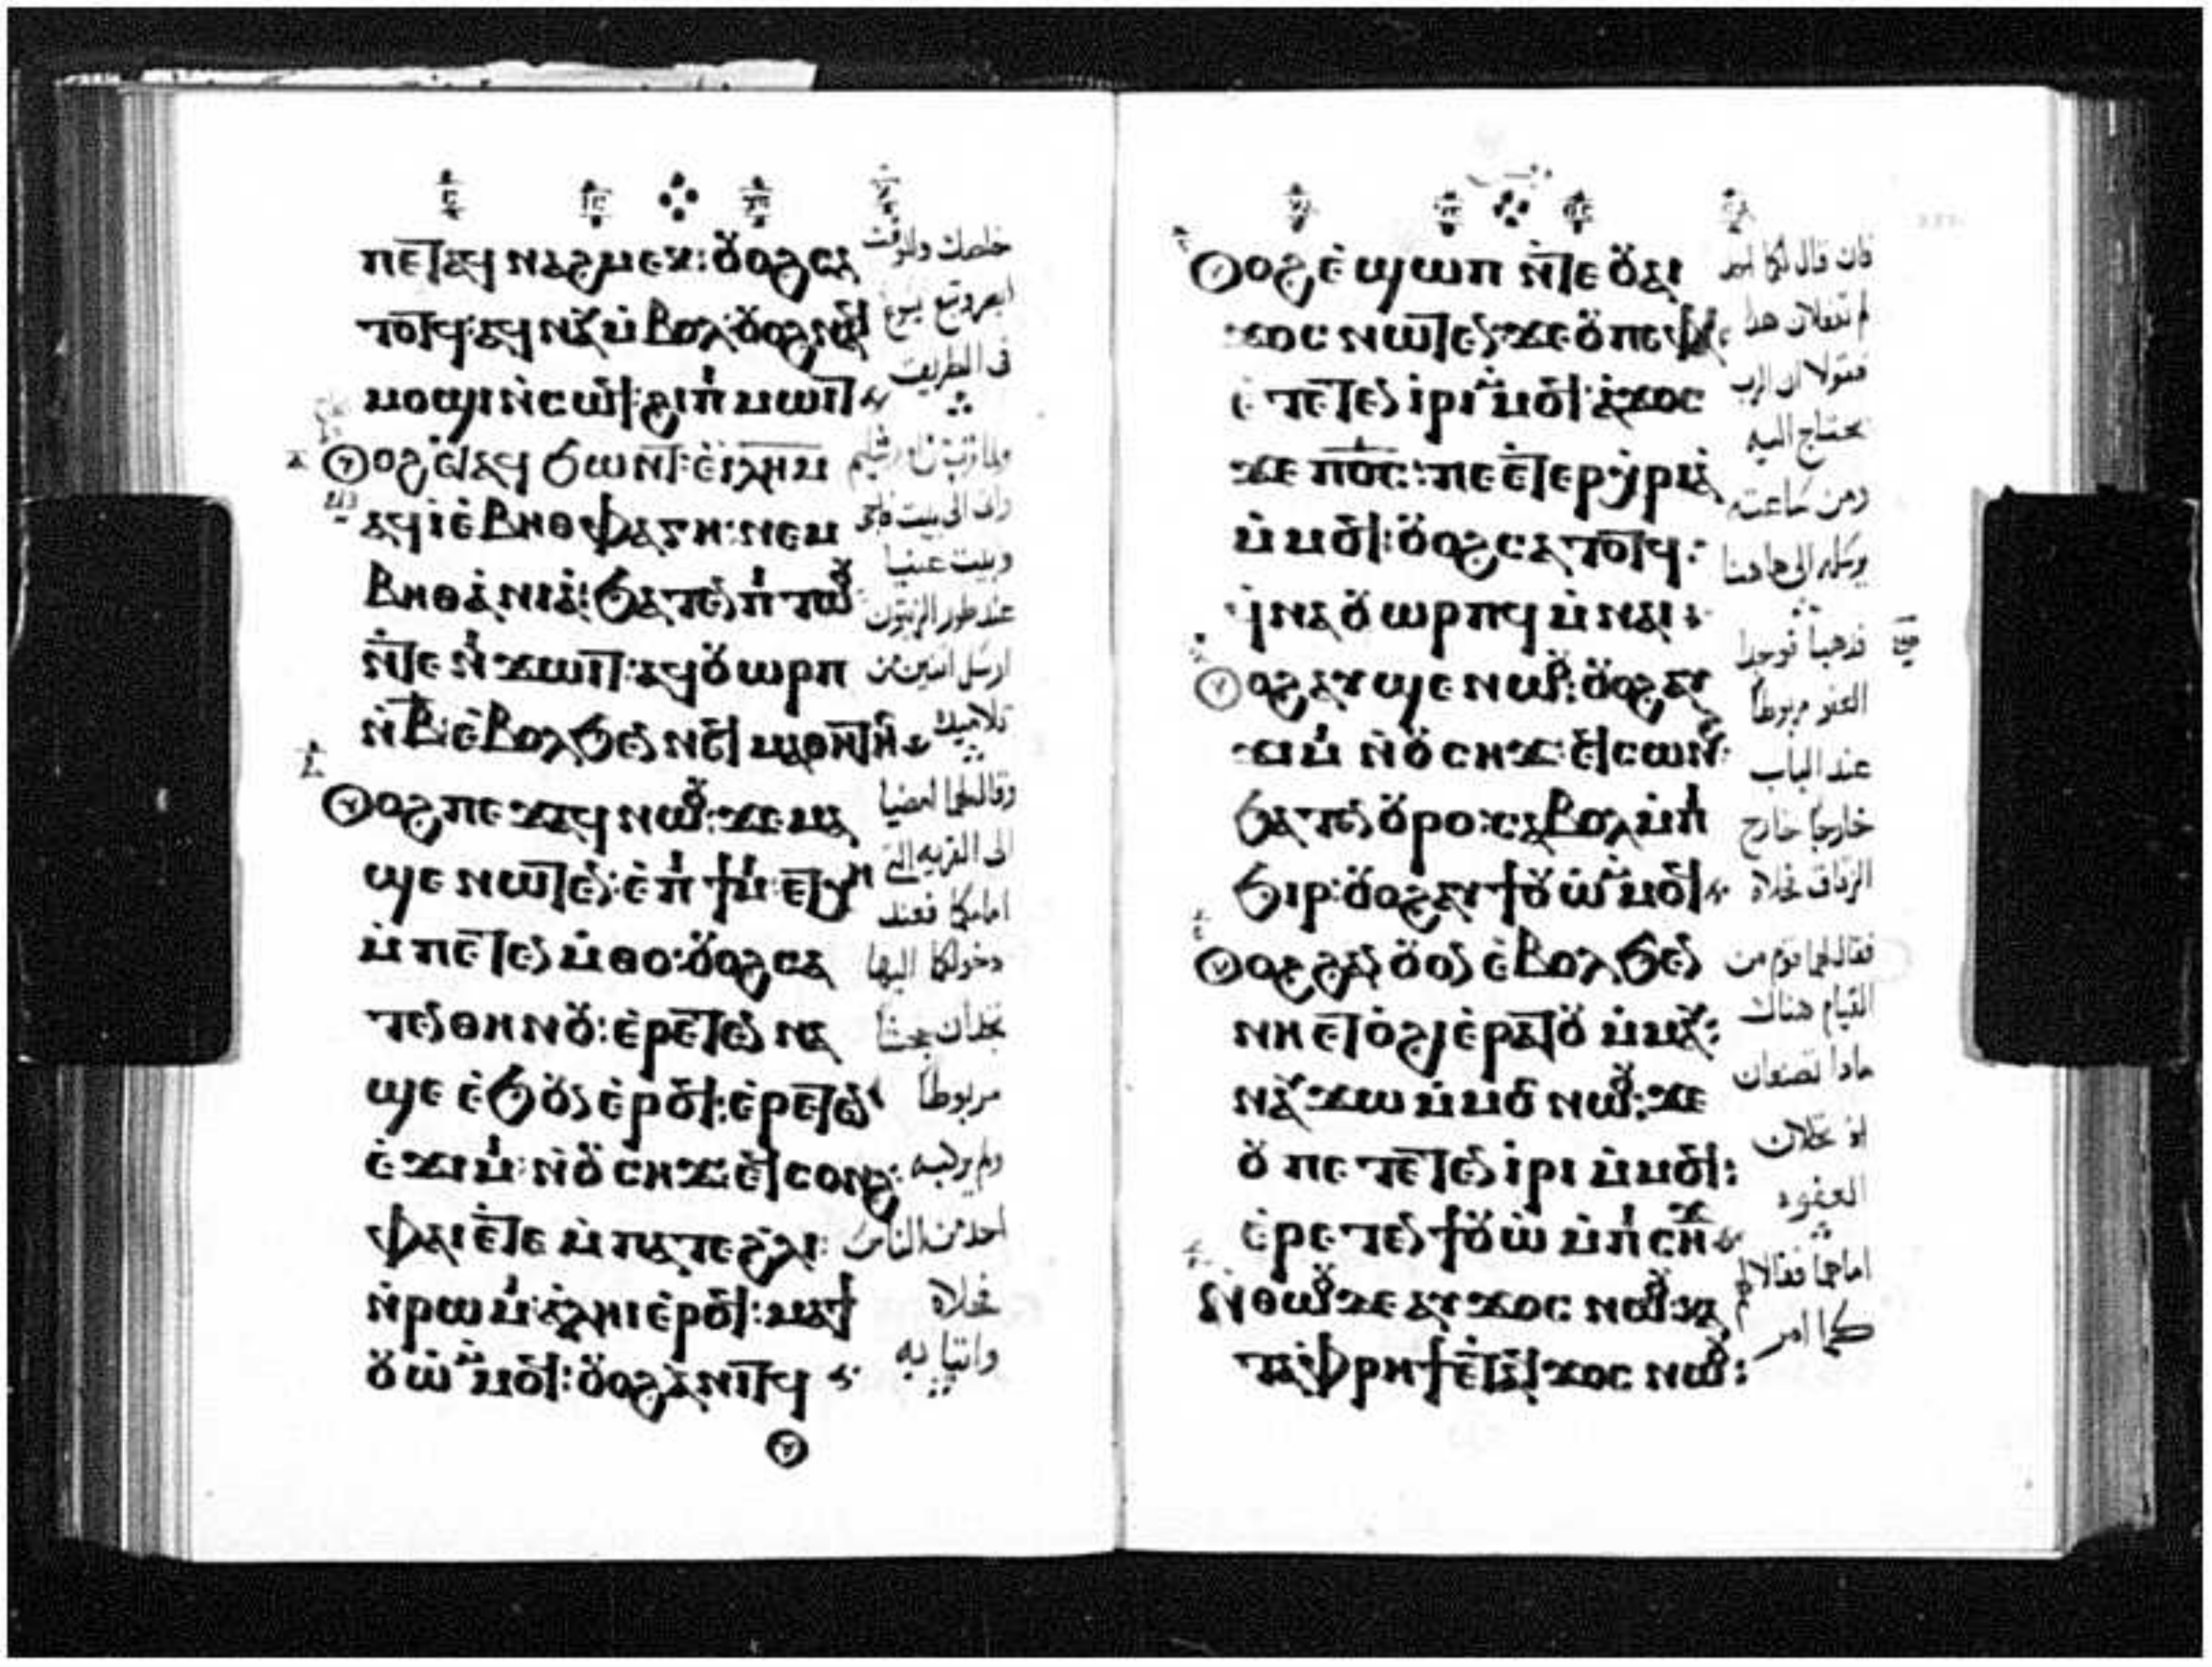 ⲡⲉⲧⲁϥ ⲛⲁϩⲙⲉⲕ: ⲟⲩⲟϩ ⲥⲁ
ⲧⲟⲧϥ: ⲁϥⲛⲁⲩ ⲙ̀ⲃⲟⲗ: ⲟⲩⲟϩ ⲛⲁϥ
ⲙⲟϣⲓ ⲛ̀ⲥⲱϥ: ϩⲓ ⲡⲓ ⲙⲱⲓⲧ
ⲟⲩⲟϩ ⲉⲧⲁϥ ϧⲱⲛⲧ: ⲉ̀ⲓ̅ⲗ̅ⲏ̅ⲙ̅
ⲁϥⲓ̀ ⲉ̀ⲃⲏⲑⲫⲁⲅⲏ: ⲛⲉⲙ
ⲃⲏⲑⲁⲛⲓⲁ: ϧⲁⲧⲉⲛ ⲡⲓ ⲧⲱⲟⲩ
ⲛ̀ⲧⲉ ⲛⲓ ϫⲱⲓⲧ: ⲁϥ ⲟⲩⲱⲣⲡ
ⲛ̀ⲃ̅: ⲉ̀ⲃⲟⲗ ϧⲉⲛ ⲛⲉϥ ⲙⲁⲑⲏⲧⲏⲥ
ⲟⲩⲟϩ ⲡⲉϫⲁϥ ⲛⲱⲟⲩ: ϫⲉ ⲙⲁ
ϣⲉ ⲛⲱⲧⲉⲛ: ⲉ̀ⲡⲓ ϯⲙⲓ: ⲉⲧⲭⲏ
ⲙ̀ⲡⲉⲧⲉⲛ ⲙ̀ⲑⲟ: ⲟⲩⲟϩ ⲥⲁ
ⲧⲉⲛ ⲑⲏⲛⲟⲩ: ⲉ̀ⲣⲉⲧⲉⲛ ⲛⲁ
ϣⲉ ⲉ̀ϧⲟⲩⲛ ⲉ̀ⲣⲟϥ: ⲉ̀ⲣⲉⲧⲉⲛ
ⲉ̀ϫⲓⲙⲓ: ⲛ̀ⲟⲩ ⲥⲏϫ: ⲉϥ ⲥⲟⲛϩ:
ⲫⲁⲓ ⲉ̀ⲧⲉ ⲙ̀ⲡⲁⲧⲉ ϩⲗⲓ:
ⲛ̀ⲣⲱⲙⲓ: ⲁⲗⲏⲓ ⲉ̀ⲣⲟϥ: ⲙⲁⲧ
ⲟⲩⲱ ⲙ̀ⲙⲟϥ: ⲟⲩⲟϩ ⲁⲛⲓⲧϥ
خلصك وللوقت
ابصر وتبع يسوع
في الطريق
ولما قرب من اورشليم
واتى الى بيت فاجى
وبيت عنيا
عند طور الزيتون
ارسل اثنين من
تلاميذه
وقال لهما امضيا
الى القريه التي
امامكما فعند
دخولكما اليها
تجدان جحشا
مربوطا
ولم يركبه
احد من الناس
فحلاه
واتيا به
ⲟⲩⲟϩ ⲉ̀ϣⲱⲡ ⲛ̀ⲧⲉ ⲟⲩⲁⲓ
ϫⲟⲥ ⲛⲱⲧⲉⲛ: ϫⲉ ⲟⲩ ⲡⲉ ⲫⲁⲓ
ⲉ̀ⲧⲉⲧⲉⲛ ⲓ̀ⲣⲓ ⲙ̀ⲙⲟϥ: ⲁ̀ϫⲟⲥ
ϫⲉ ⲡ̅ⲟ̅ⲥ̅: ⲡⲉ ⲉ̀ⲧⲉⲣⲭⲣⲓⲁ
ⲙ̀ⲙⲟϥ: ⲟⲩⲟϩ ⲥⲁⲧⲟⲧϥ:
ϥ̀ⲛⲁ ⲟⲩⲱⲣⲡϥ ⲙ̀ⲛⲁⲓ:
ⲟⲩⲟϩ ⲁⲩϣⲉ ⲛⲱⲟⲩ: ⲟⲩⲟϩ ⲁⲩ
ϫⲓⲙⲓ ⲛ̀ⲟⲩ ⲥⲏϫ: ⲉϥ ⲥⲱⲛϩ
ϧⲁⲧⲉⲛ ⲟⲩⲣⲟ: ⲥⲁⲃⲟⲗ ⲙ̀ⲡⲓ
ϧⲓⲣ: ⲟⲩⲟϩ ⲁⲩϯⲟⲩⲱ ⲙ̀ⲙⲟϥ
ⲟⲩⲟϩ ϩⲁⲛ ⲟⲩⲟⲛ ⲉ̀ⲃⲟⲗ ϧⲉⲛ
ⲛⲏ ⲉⲧⲟϩⲓ ⲉ̀ⲣⲁⲧⲟⲩ ⲙ̀ⲙⲁⲩ:
ⲛⲁⲩ ϫⲱ ⲙ̀ⲙⲟⲥ ⲛⲱⲟⲩ: ϫⲉ
ⲟⲩ ⲡⲉ ⲧⲉⲧⲉⲛ ⲓ̀ⲣⲓ ⲙ̀ⲙⲟϥ:
ⲉ̀ⲣⲉⲧⲉⲛ ϯⲟⲩⲱ ⲙ̀ⲡⲓ ⲥⲏϫ
ⲛ̀ⲑⲱⲟⲩ ϫⲉ ⲁⲩ ϫⲟⲥ ⲛⲱⲟⲩ: ⲕⲁ
ⲧⲁ ⲫⲣⲏϯ ⲉ̀ⲧⲁϥ ϫⲟⲥ ⲛⲱⲟⲩ:
فان قال لكما احد
لم تفعلان هذا
فقولا ان الرب
يحتاج اليه
ومن ساعته
يرسله الى هاهنا
فذهبا فوجدا
العفو مربوطا
عند الباب
خارجا خارج
الزقاق فحلاه
فقال لهما قوم من
القيام هناك
ماذا تصنعان
اذ تحلان
العفو
اماهما فقالا لهم
كما امر